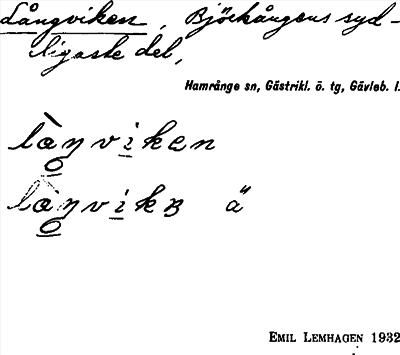 Långviken, Björkångens syd-
ligaste del,
Hamrånge sn, Gästrikl. ö. tg, Gävleb. l.
làŋvikɘn
làŋvikʙ ä
EMIL LEMHAGEN 1932